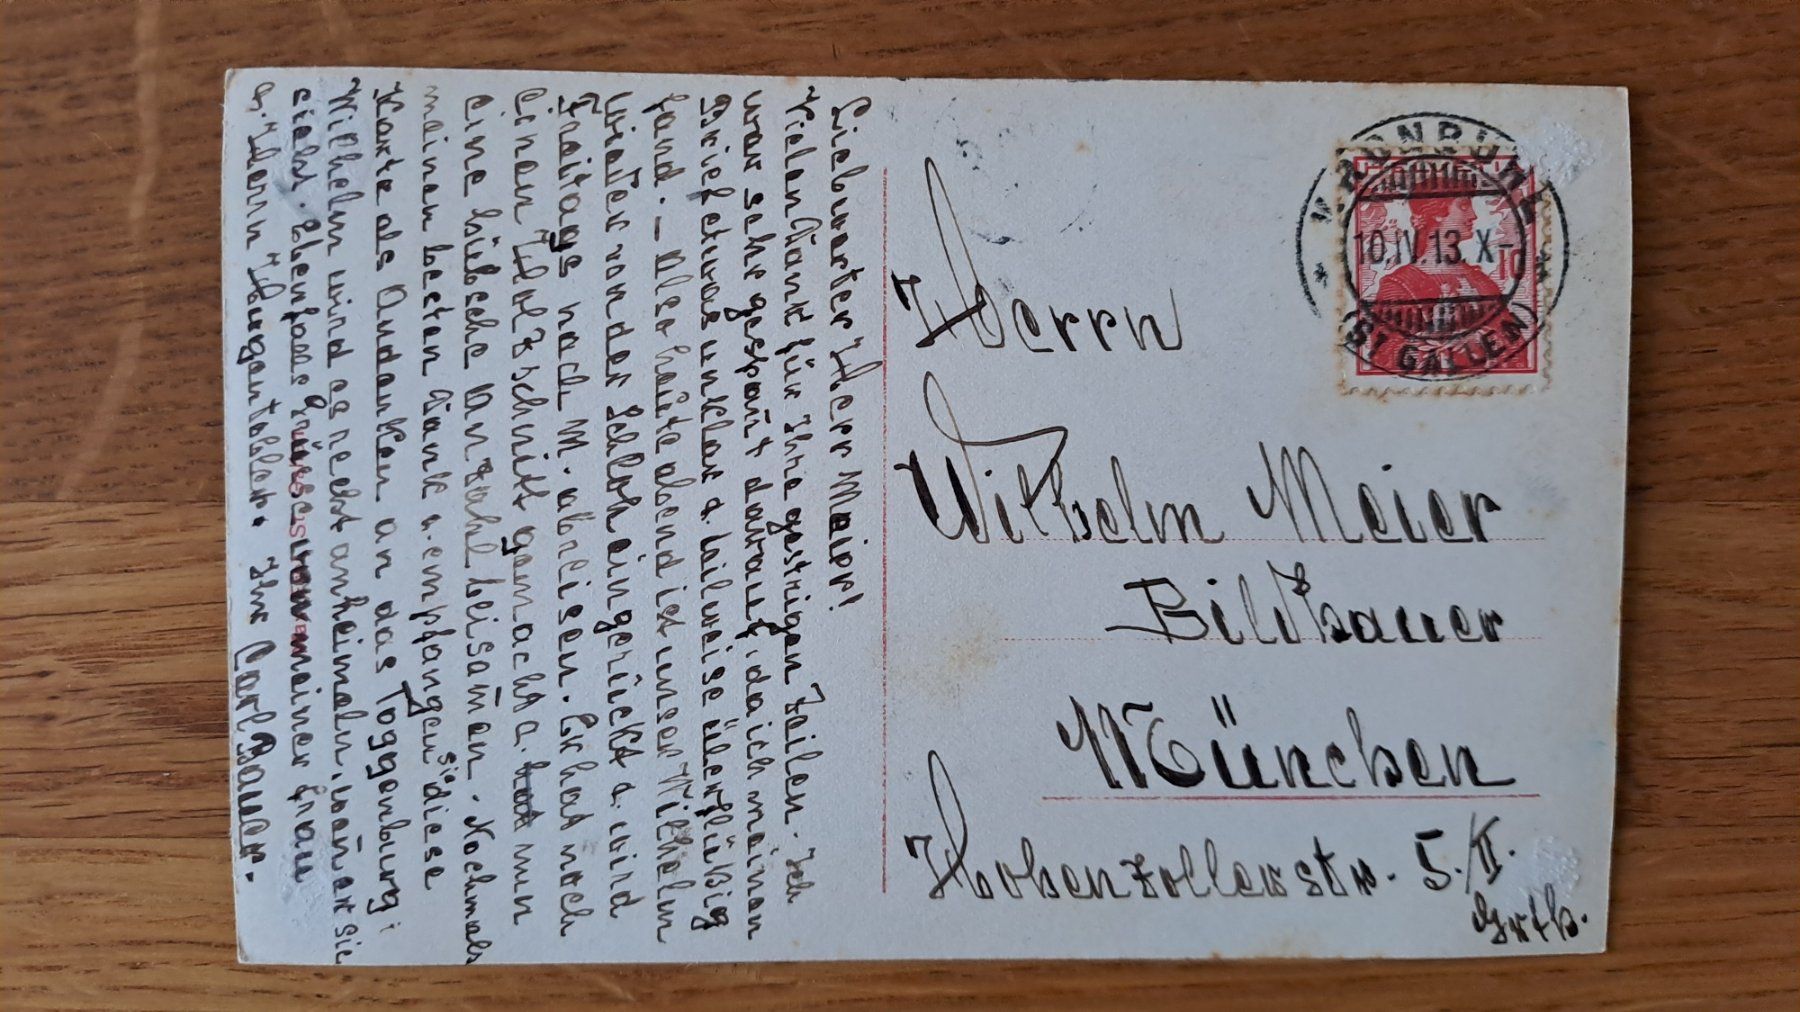 Lieb.werter Herr Meier!
Vielen Dank für Ihre gestrigen Zeilen. Ich
war sehr gespan̄t darauf, da ich meinen
Brief etwas unklar u. teilweise überflüßig
fand. – Also heute abend ist unser Wilhelm
wieder von der Schloh eingerückt u. wird
Freitags nach M. abreisen. Er hat noch
einen Holzschnitt gemacht u. hat nun
eine hübsche Anzahl beisam̄en. Nochmals
meinen besten Dank u. empfangen sie diese
Karte als Andenken an das Toggenburg;
Wilhelm wird es nebst anheimeln, wan̄ er sie
sieht. Ebenfalls Grüsse von meiner Frau
u. Herrn Hugentobler. Ihr Carl Bauer.
KRONBÜHL
10.IV.13.X-
(ST GALLEN)
10
Herrn
Wilhelm Meier
Bildhauer
München
Hohenzollernstr. 5./II.
Grth.